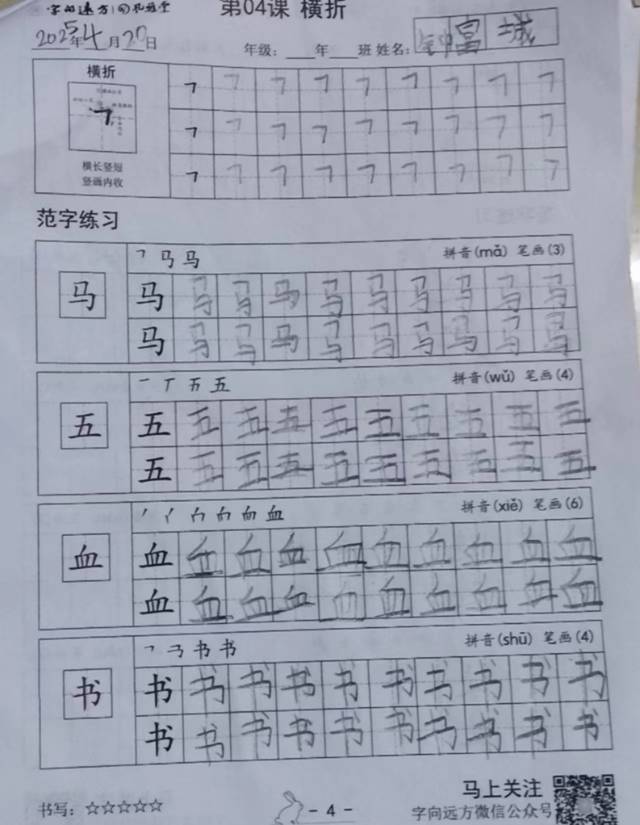 字向远方
第04课 横折
2025年4月20日
年级: ___年___班 姓名: 富城
横折
横长竖短
竖画内收
㇕ ㇕ ㇕ ㇕ ㇕ ㇕ ㇕ ㇕ ㇕
㇕ ㇕ ㇕ ㇕ ㇕ ㇕ ㇕ ㇕ ㇕
㇕ ㇕ ㇕ ㇕ ㇕ ㇕ ㇕ ㇕ ㇕
范字练习
马 拼音(mǎ) 笔画(3)
马
马 马 马 马 马 马 马 马 马 马
马 马 马 马 马 马 马 马 马 马
五 拼音(wǔ) 笔画(4)
五
五 五 五 五 五 五 五 五 五 五
五 五 五 五 五 五 五 五 五 五
血 拼音(xiě) 笔画(6)
血
血 血 血 血 血 血 血 血 血 血
血 血 血 血 血 血 血 血 血 血
书 拼音(shū) 笔画(4)
书
书 书 书 书 书 书 书 书 书 书
书 书 书 书 书 书 书 书 书 书
马上关注
书写: ☆☆☆☆☆
- 4 -
字向远方微信公众号